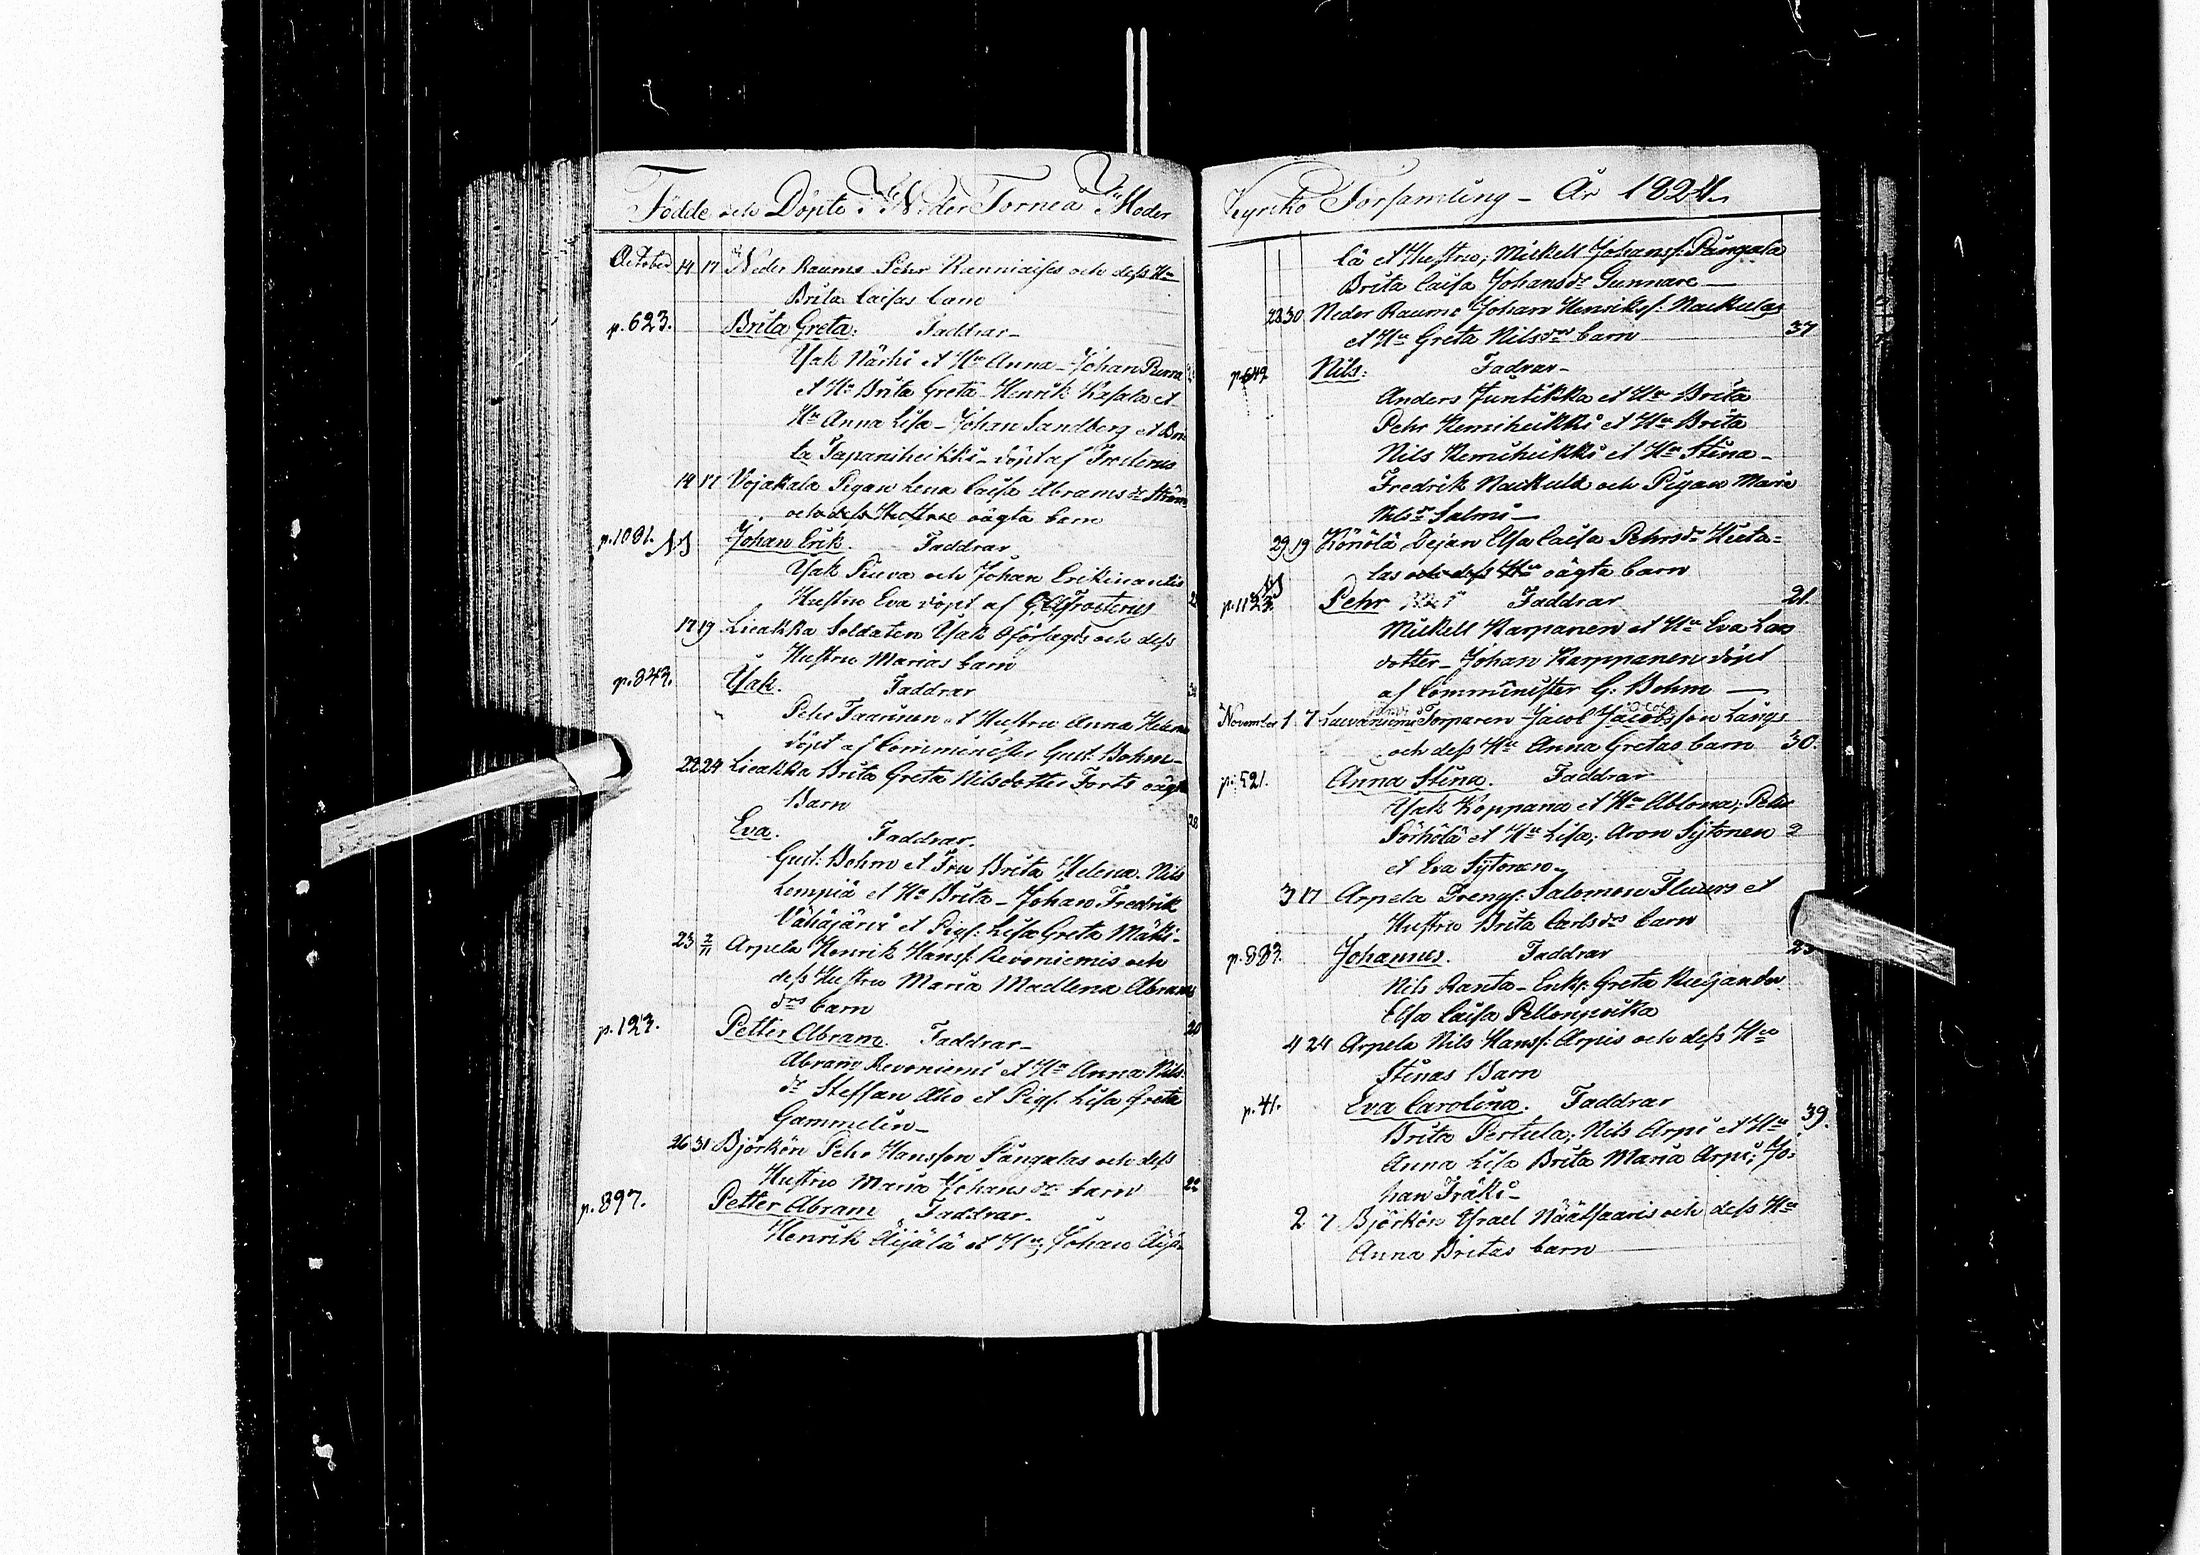 Födde och Döpte i Neder Torneå Moder
October 14 17 Neder Raumo Pehr Kanniaises och dess Hu
Brita Caisas barn
p. 623. Brita Greta. Faddrar
Isak Närhi et Hu Anna - Johan Purra
et Hu Brita Greta - Henrik Kasala et
Hu Anna Lisa - Johan Sandberg et Bri
ta Tapaniheikki - döpt af Frosterus
14 17 Vojakala Pigan Lena Caisa Abramsdr
och dess Hustru oägta barn
p. 1081. Johan Erik. Faddrar
Isak Piuva och Johan Erikinantis
Hustru Eva döpt af Frosterus
17 19 Lieakka Soldaten Isak Oförlagds och dess
Hustru Marias barn
p. 843. Isak. Faddrar
Pehr Taarinen et Hustru Anna Helena
döpt af Comminister Gust: Bohm
22 24 Lieakka Brita Greta Nilsdotter Forts oägta
Barn
Eva. Faddrar.
Gust: Bohm et Fru Brita Helena. Nils
Lempiä et Hu Brita - Johan Fredrik
Vähäjärvi et Pigs: Lisa Greta Mäki-
23 2/11 Arpela Henrik Hanss: Revoniemis och
dess Hustru Maria Madlena Abrams
drs barn
p. 123. Petter Abram. Faddrar
Abram Revoniemi et Hu Anna Nils
dr Steffan Aho et Pigs. Lisa Greta
Gammelin
26 31 Björkön Pehr Hansson Pångalas och dess
Hustru Maria Johansdr barn
p. 897. Petter Abram Faddrar.
Henrik Äijälä et Hu; Johan Äijä-
Kyrko Församling - År 1824.
lä et Hustru; Mickell Johans: Pångala
Brita Caisa Johansdr Gunnare
28 30 Neder Raumo Johan Henrikss: Naikulas
et Hu Greta Nilsdrs barn 37
p. 642 Nils: Fadrar
Anders Juntikka et Hu Brita
Pehr Kemiheikki et Hu Brita
Nils Kemiheikki et Hu Stina
Fredrik Naikula och Pigan Maria
Nilsdr Salmi
29 19 Könölä Dejan Elsa Caisa Pehrsdr Hieta-
las och dess Hu oägta barn
p. 1123. Pehr Faddrar 21.
Mickell Karpanen et Hu Eva Lars
dotter - Johan Karppanen döpt
af Comminister G: Bohm
November 1 7 Torparen Jacob Jacobsson Längs
och dess Hu Anna Gretas barn 30.
p. 521. Anna Stina. Faddrar
Isak Koppana et Hu Ablona; Pehr
Pörhölä et Hu Lisa; Aron Sÿtonen
et Eva Sÿtonen
3 17 Arpela Drengs: Salomon Fluurs et
Hustru Brita Carlsdrs barn
p. 883. Johannes. Faddrar 23
Nils Ranta - Enks: Greta
Elsa Caisa Pellonpoika
4 24 Arpela Nils Hanss: Arpis och dess Hu
Stinas Barn
p. 41. Eva Carolina. Faddrar 39.
Brita Pertula; Nils Arpi et Hu
Anna Lisa Brita Maria Arpi; Jo-
han Träki
2 7 Björkön Israel Näätsaaris och dess Hu
Anna Britas barn